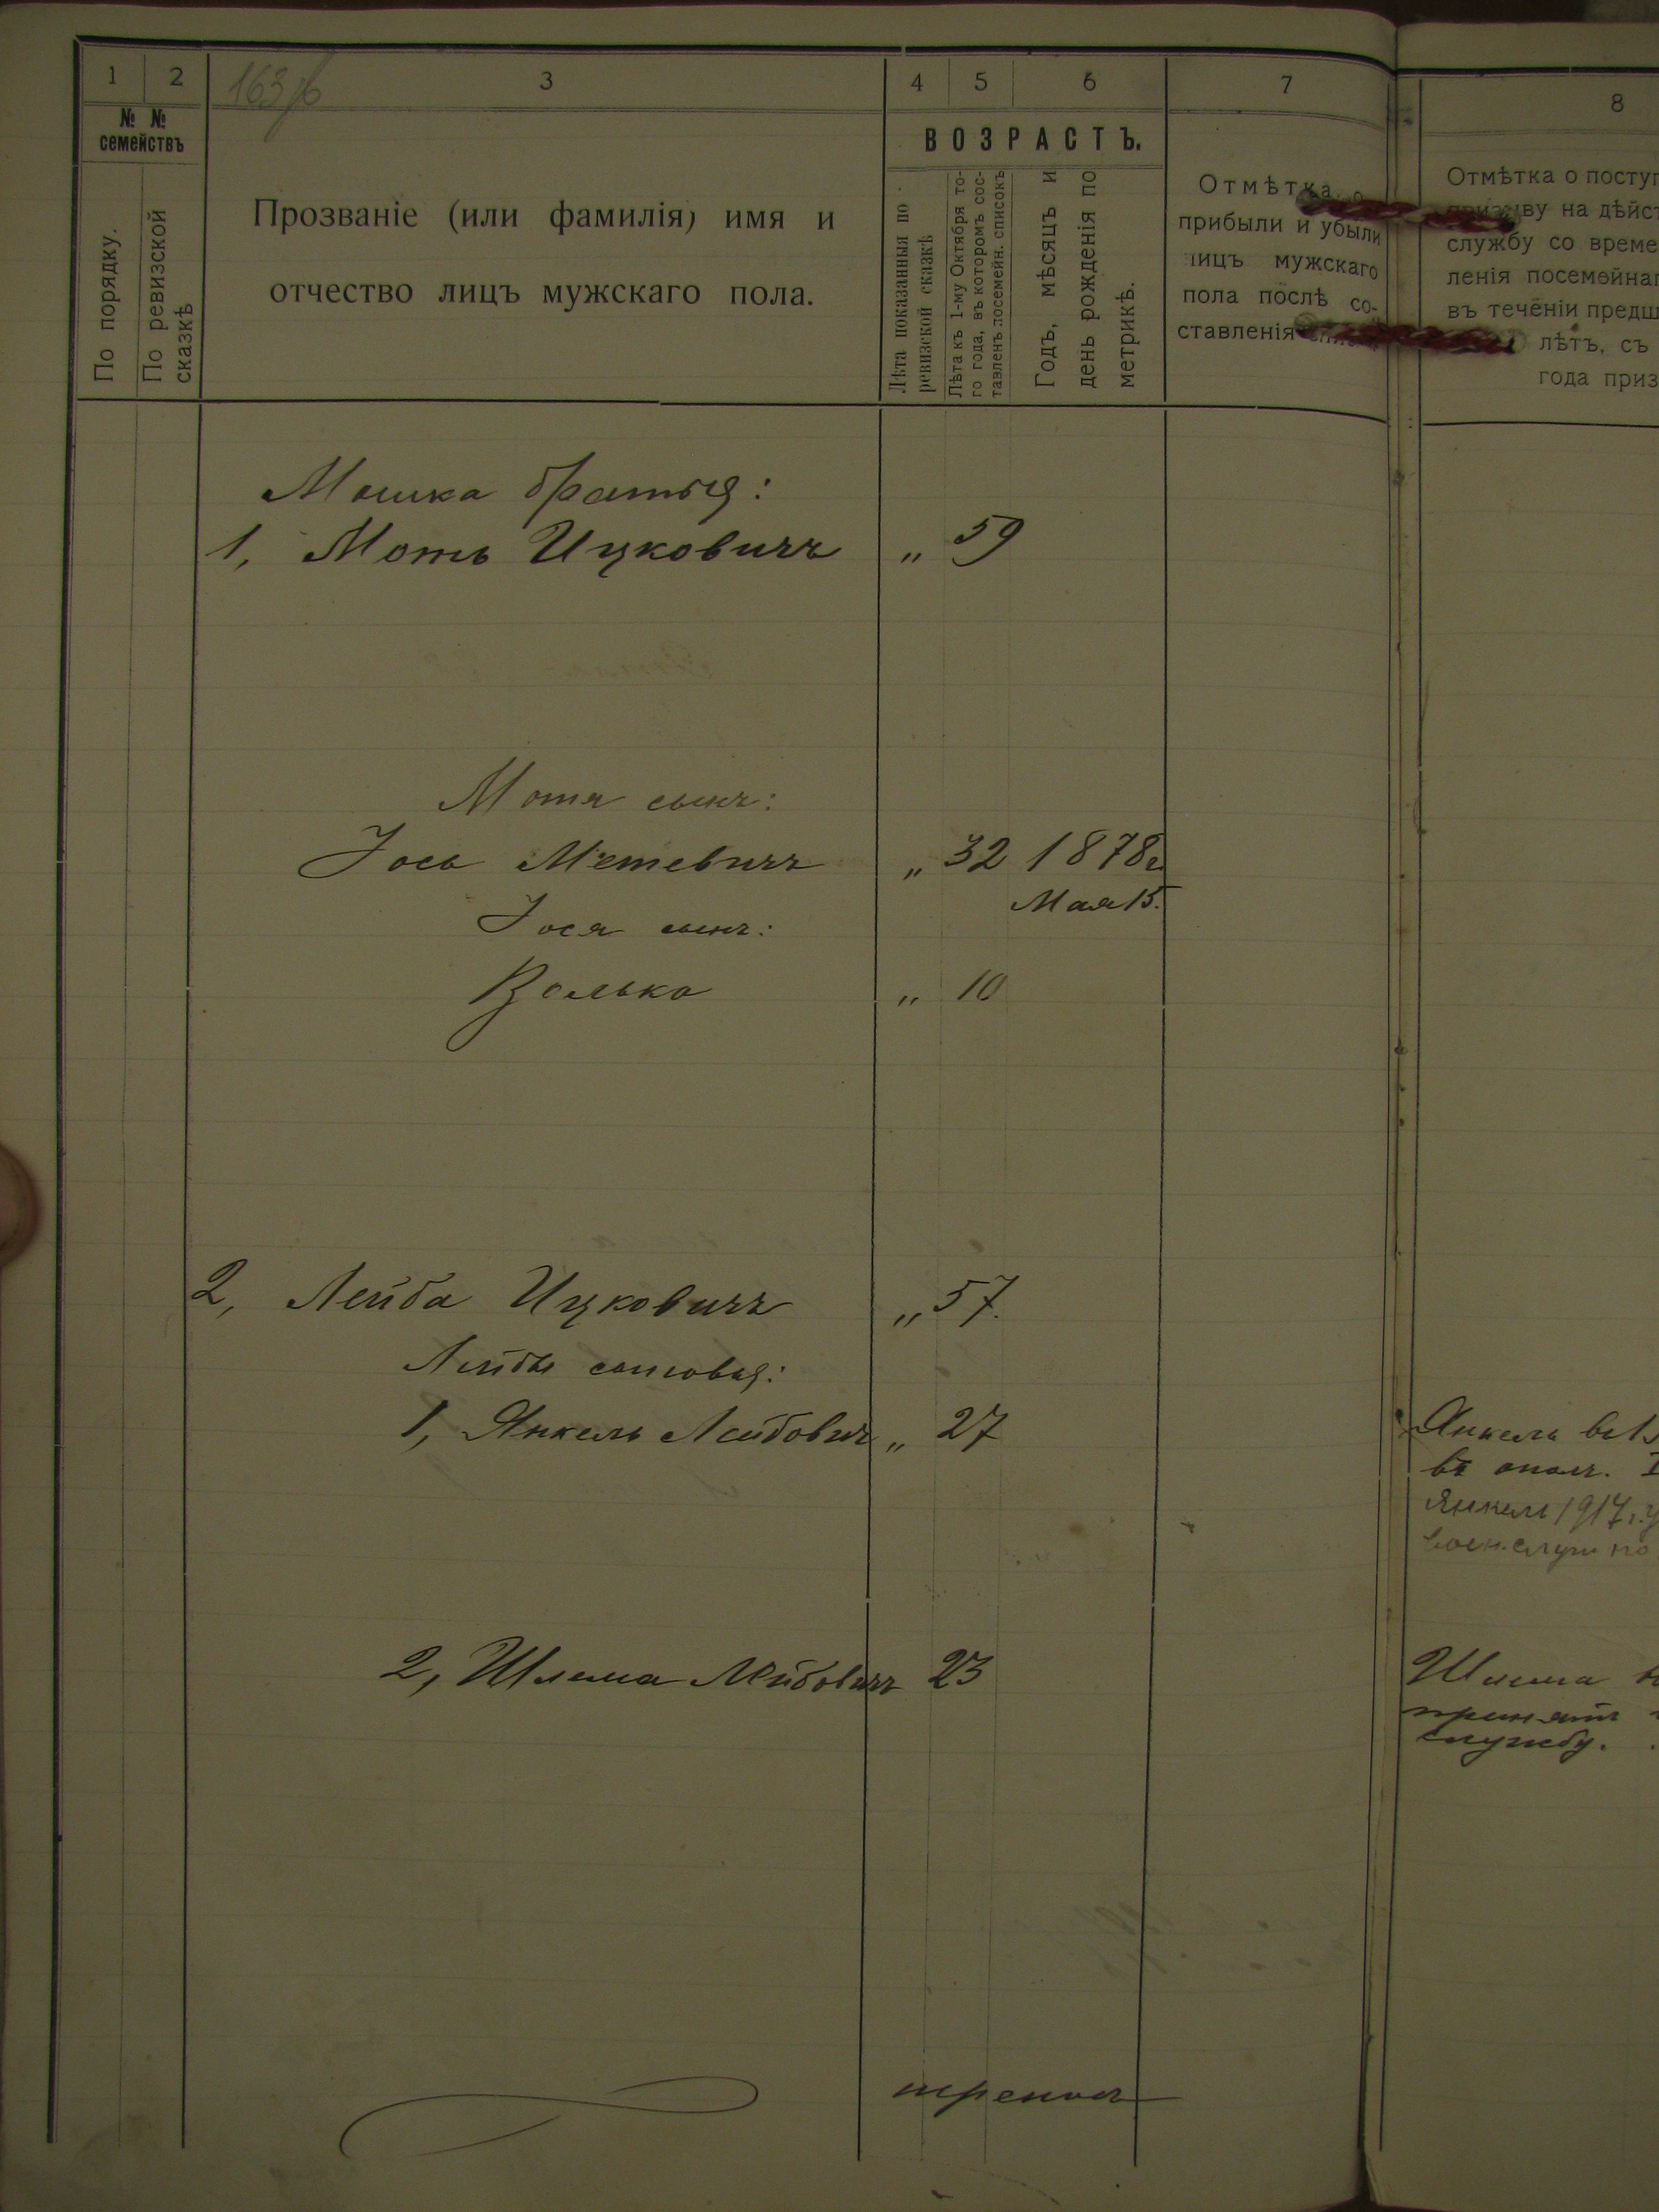 1 2 3 4 5 6 7 8
163/6
№ № семействъ
По порядку.
По ревизской сказкѣ
Прозваніе (или фамилія) имя и
отчество лицъ мужскаго пола.
ВОЗРАСТЪ.
Лѣта показанныя по
ревизской сказкѣ
Лѣта къ 1-му Октября то-
го года, въ которомъ сос-
тавленъ посемейн. списокъ
Годъ, мѣсяцъ и
день рожденія по
метрикѣ.
Отмѣтка о
прибыли и убыли
лицъ мужскаго
пола послѣ со-
ставленія
Отмѣтка о посту
призыву на дѣйс
службу со време
ленія посемейнаг
въ теченіи предш
лѣтъ, съ
года приз
Мошка братья:
1, Моть Ицковичъ „ 59
Мотя сынъ:
Іось Мотевичъ „ 32 1878 г.
Мая 15.
Іося сынъ:
Волько „ 10
2, Лейба Ицковичъ „ 57.
Лейбы сыновья:
1, Янкель Лейбович „ 27
Янкель въ 1
въ опол. I
Янкель 1917 г. у
воен. служ по
2, Шлема Лейбовичъ 23
Шлема в
принятъ
службу.